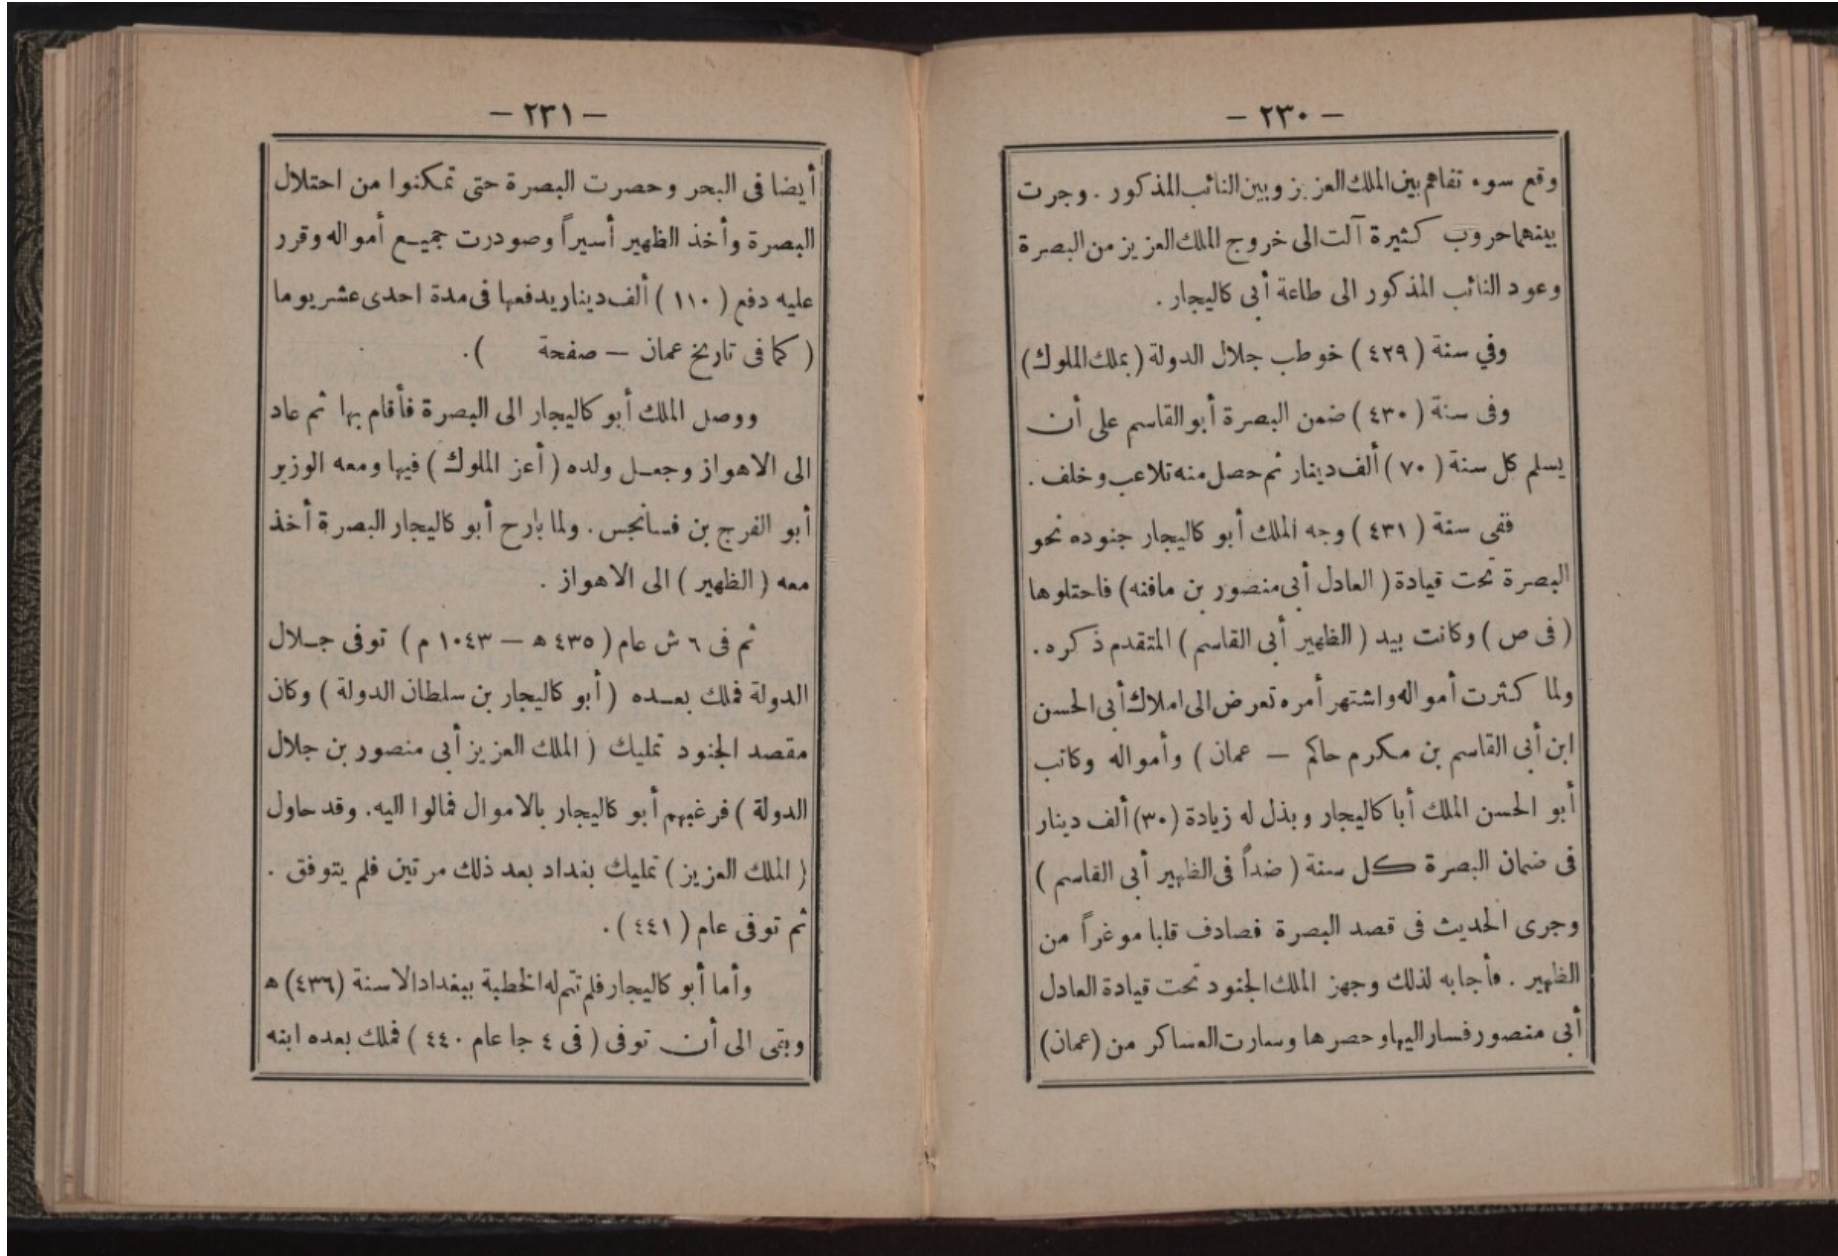 — ٢٣٠ —
وقع سوء تفاهم بين الملك العزيز وبين النائب المذكور . وجرت
بينهما حروب كثيرة آلت الى خروج الملك العزيز من البصرة
وعود النائب المذكور الى طاعة أبى كاليجار .
وفي سنة ( ٤٢٩ ) خوطب جلال الدولة ( بملك الملوك )
وفى سنة ( ٤٣٠ ) ضمن البصرة أبو القاسم على أن
يسلم كل سنة ( ٧٠ ) ألف دينار ثم حصل منه تلاعب وخلف .
ففى سنة ( ٤٣١ ) وجه الملك أبو كاليجار جنوده نحو
البصرة تحت قيادة ( العادل أبى منصور بن مافنه ) فاحتلوها
( فى ص ) وكانت بيد ( الظهير أبى القاسم ) المتقدم ذكره .
ولما كثرت أمواله واشتهر أمره تعرض الى املاك أبى الحسن
ابن أبى القاسم بن مكرم حاكم — عمان ) وأمواله وكاتب
أبو الحسن الملك أبا كاليجار وبذل له زيادة (٣٠) ألف دينار
فى ضمان البصرة كل سنة ( ضداً فى الظهير أبى القاسم )
وجرى الحديث فى قصد البصرة فصادف قلبا موغراً من
الظهير . فأجابه لذلك وجهز الملك الجنود تحت قيادة العادل
أبى منصور فسار اليها وحصرها وسارت العساكر من (عمان)
— ٢٣١ —
أيضا فى البحر وحصرت البصرة حتى تمكنوا من احتلال
البصرة وأخذ الظهير أسيراً وصودرت جميع أمواله وقرر
عليه دفع ( ١١٠ ) ألف دينار يدفعها فى مدة احدى عشر يوما
( كما فى تاريخ عمان — صفحة      ) .
ووصل الملك أبو كاليجار الى البصرة فأقام بها ثم عاد
الى الاهواز وجعل ولده ( أعز الملوك ) فيها ومعه الوزير
أبو الفرج بن فسانجس . ولما بارح أبو كاليجار البصرة أخذ
معه ( الظهير ) الى الاهواز .
ثم فى ٦ ش عام ( ٤٣٥ ه — ١٠٤٣ م ) توفى جلال
الدولة فملك بعده ( أبو كاليجار بن سلطان الدولة ) وكان
مقصد الجنود تمليك ( الملك العزيز أبى منصور بن جلال
الدولة ) فرغبهم أبو كاليجار بالاموال فمالوا اليه . وقد حاول
( الملك العزيز ) تمليك بغداد بعد ذلك مرتين فلم يتوفق .
ثم توفى عام ( ٤٤١ ) .
وأما أبو كاليجار فلم تتم له الخطبة ببغداد الا سنة (٤٣٦) ه
وبقى الى أن توفى ( فى ٤ جا عام ٤٤٠ ) فملك بعده ابنه